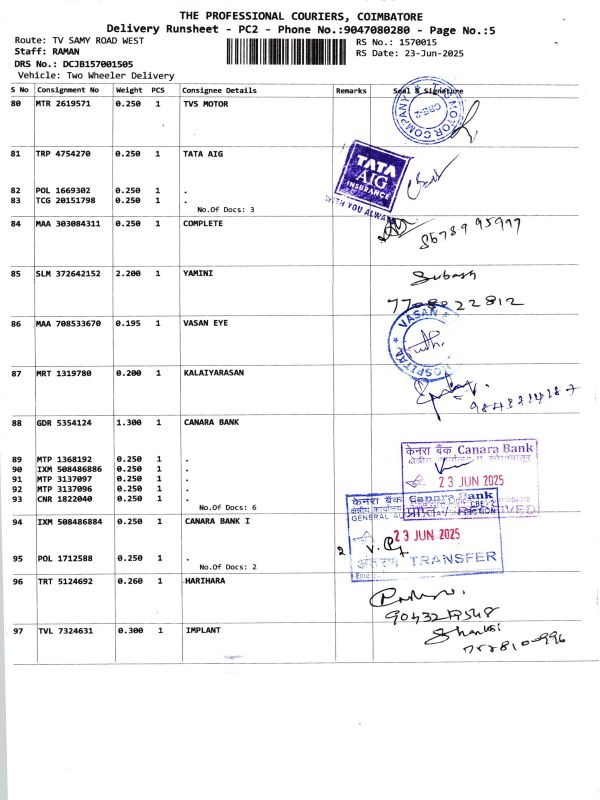 THE PROFESSIONAL COURIERS, COIMBATORE
Delivery Runsheet - PC2 - Phone No.:9047080280 - Page No.:5
Route: TV SAMY ROAD WEST
RS No.: 1570015
Staff: RAMAN
RS Date: 23-Jun-2025
DRS No.: DCJB157001505
Vehicle: Two Wheeler Delivery
S No Consignment No Weight PCS Consignee Details Remarks Seal & Signature
80 MTR 2619571 0.250 1 TVS MOTOR
MOTOR COMPANY
CBE-2
81 TRP 4754270 0.250 1 TATA AIG
TATA
AIG
INSURANCE
WITH YOU ALWAYS
82 POL 1669302 0.250 1 .
83 TCG 20151798 0.250 1 .
No.Of Docs: 3
84 MAA 303084311 0.250 1 COMPLETE
85 SLM 372642152 2.200 1 YAMINI Subash
86 MAA 708533670 0.195 1 VASAN EYE
VASAN
HOSPITAL
87 MRT 1319780 0.200 1 KALAIYARASAN
88 GDR 5354124 1.300 1 CANARA BANK
केनरा बैंक Canara Bank
89 MTP 1368192 0.250 1 .
90 IXM 508486886 0.250 1 .
91 MTP 3137097 0.250 1 .
92 MTP 3137096 0.250 1 .
93 CNR 1822040 0.250 1 .
No.Of Docs: 6
23 JUN 2025
केनरा बैंक Canara Bank
RECEIVED
94 IXM 508486884 0.250 1 CANARA BANK I
23 JUN 2025
95 POL 1712588 0.250 1 .
No.Of Docs: 2
TRANSFER
96 TRT 5124692 0.260 1 HARIHARA
97 TVL 7324631 0.300 1 IMPLANT